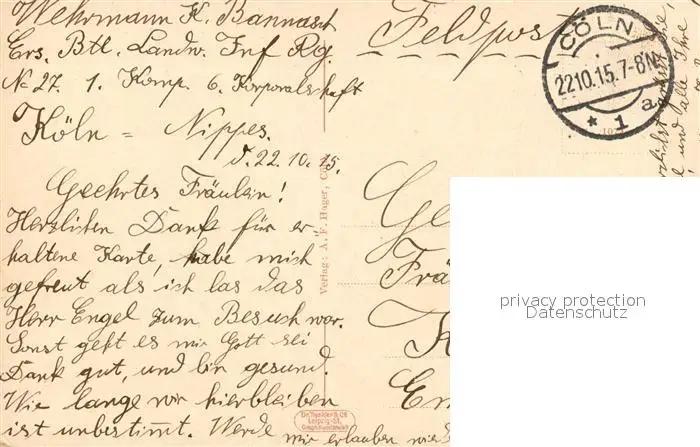 Wehrmann K. Bannasch
Ers. Btl. Landw. Inf Rg.
No 27. 1. Komp. 6. Korporalschaft
Köln = Nippes.
d. 22.10.15.
Geehrtes Fräulein!
Herzlichen Dank für er
haltene Karte, habe mich
gefreut als ich las das
Herr Engel zum Besuch war.
Sonst geht es mir Gott sei
Dank gut, und bin gesund.
Wie lange wir hierbleiben
ist unbestimmt. Werde mir erlauben
Feldpost
CÖLN
22.10.15.7-8N
* 1 a
Verlag: A. F. Hager, Cö
Dr. Trenkler & Co
Leipzig-St.
Ge
Frä
K
privacy protection
Datenschutz
und alle Ihre